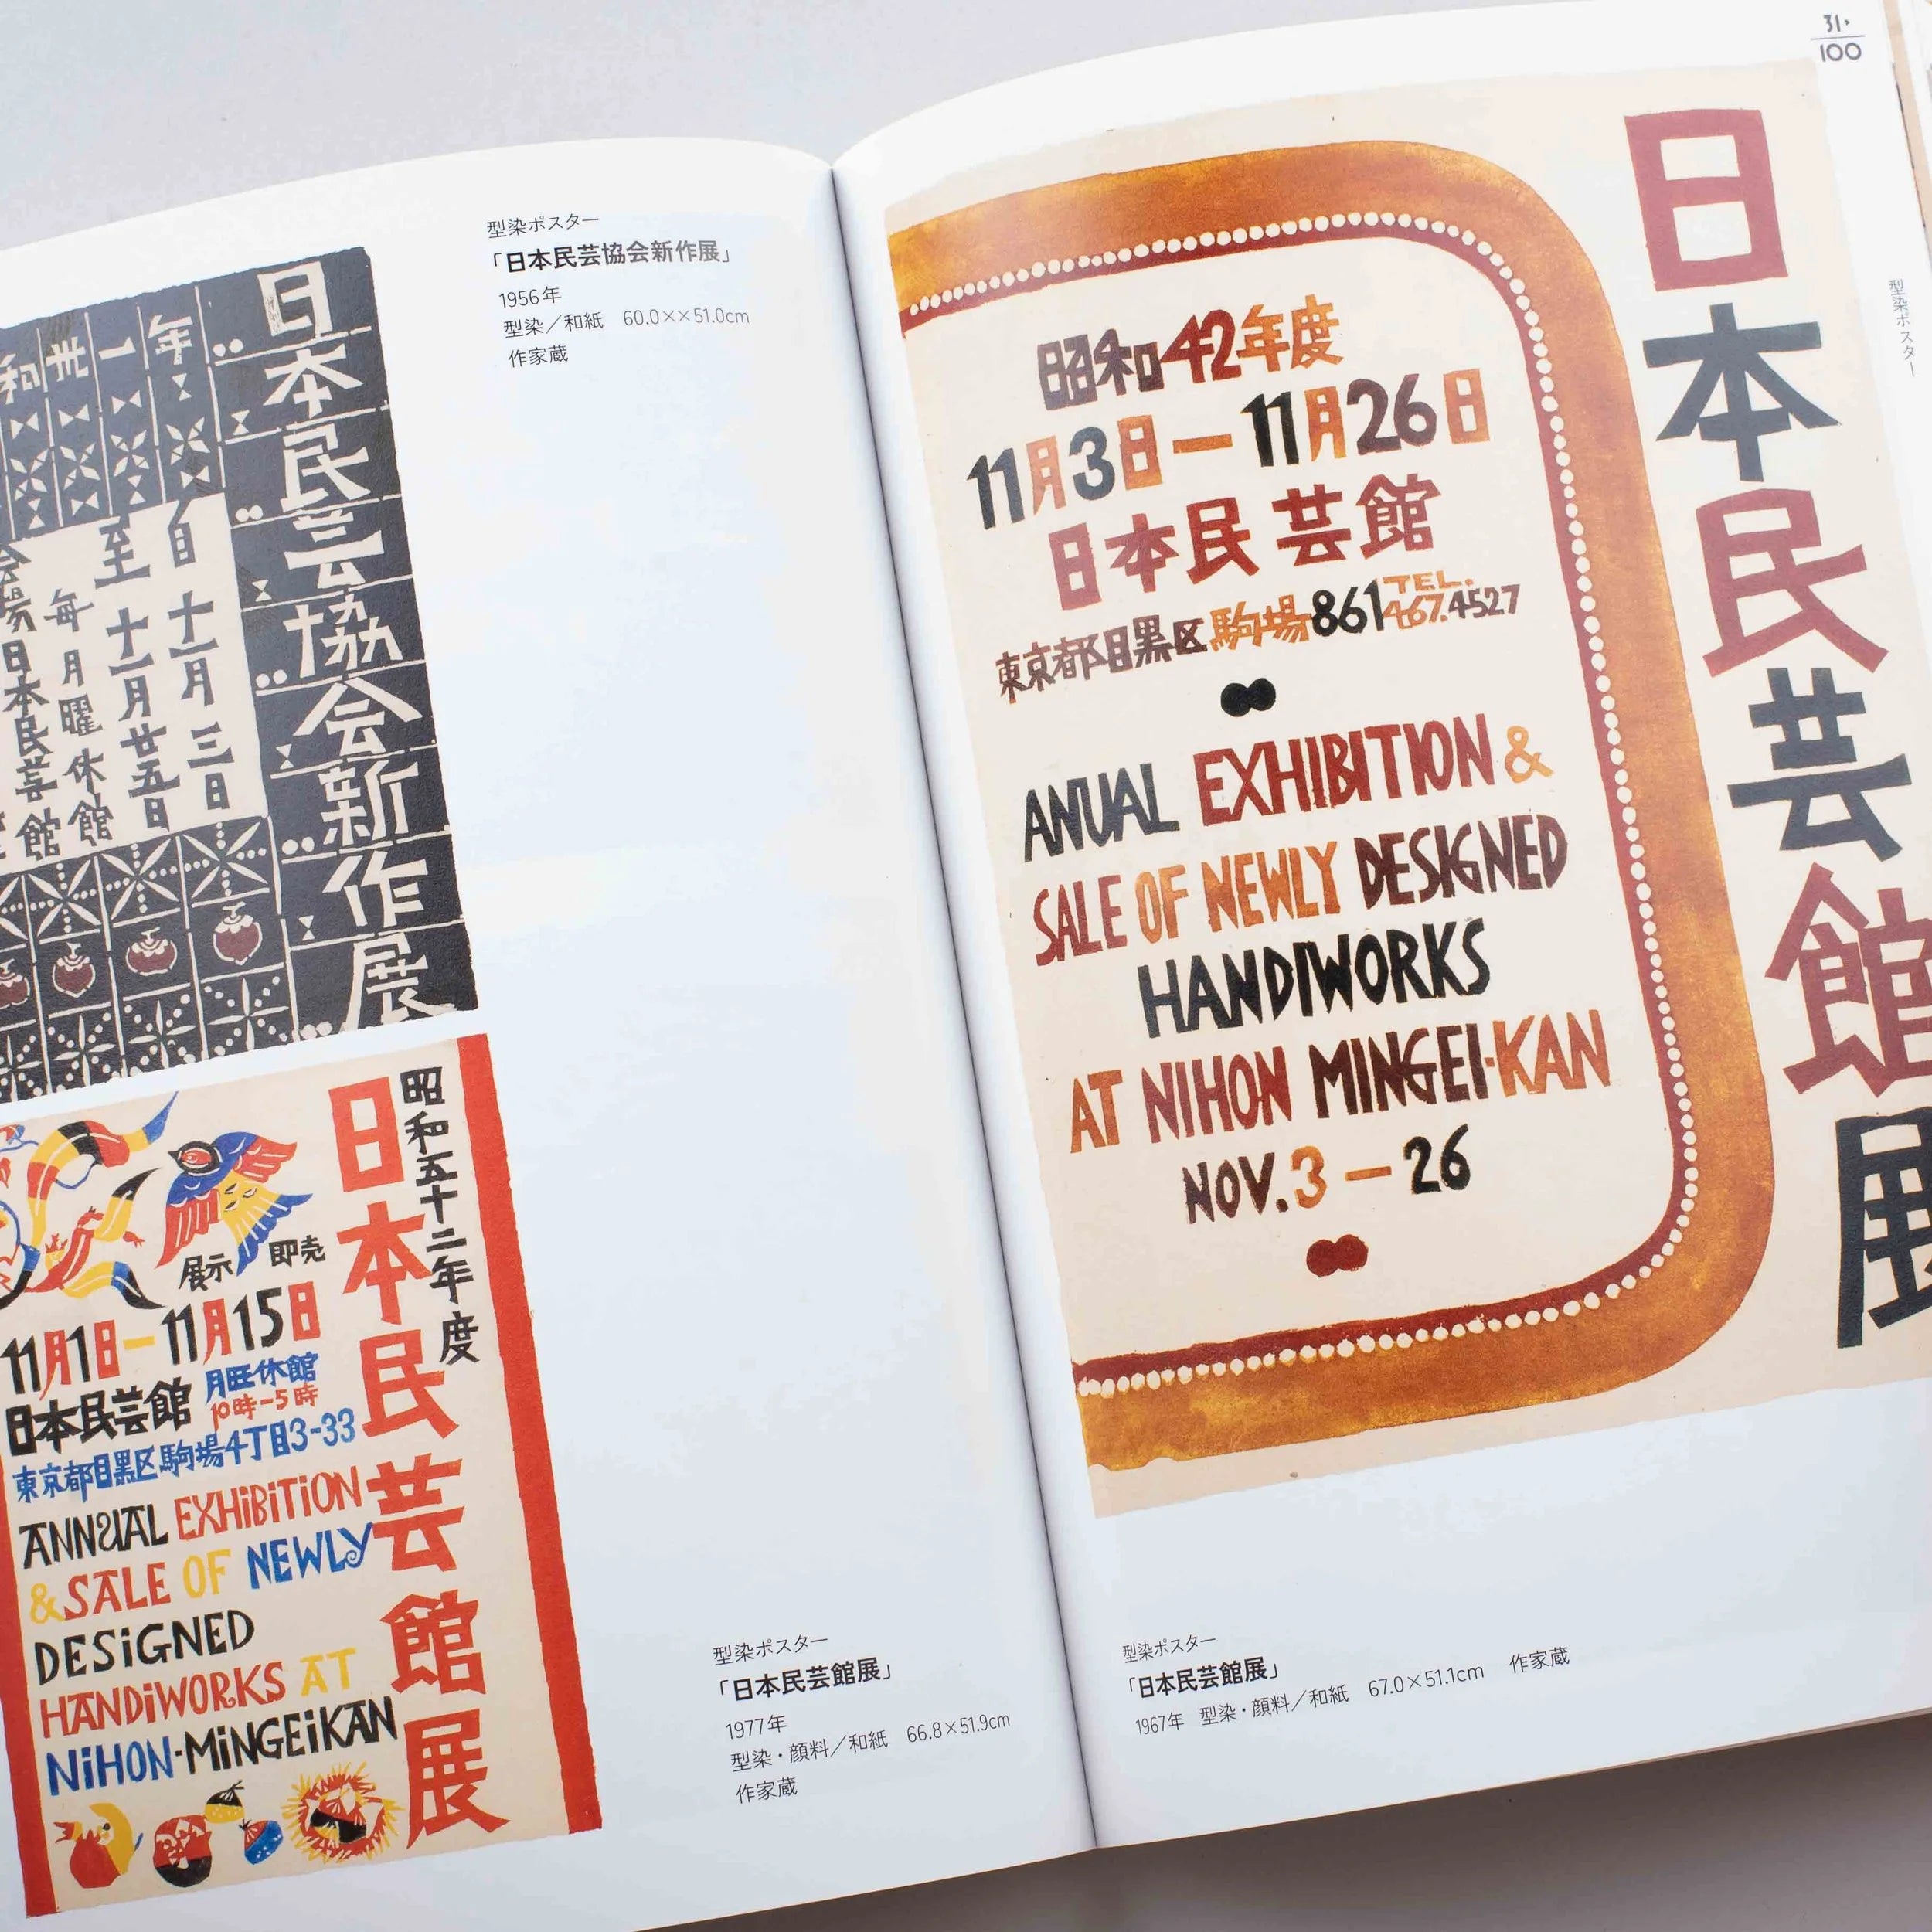 日本民芸協会新作展
和卅一年
自十一月三日
至十一月廿五日
毎月曜休館
会場日本民芸館
型染ポスター
「日本民芸協会新作展」
1956年
型染／和紙　60.0××51.0cm
作家蔵
昭和五十二年度
日本民芸館展
展示 即売
11月1日—11月15日
日本民芸館
月旺休館
10時-5時
東京都目黒区駒場4丁目3-33
ANNUAL EXHiBiTiON
&SALE OF NEWLY
DESiGNED
HANDiWORKS AT
NiHON-MiNGEiKAN
型染ポスター
「日本民芸館展」
1977年
型染・顔料／和紙　66.8×51.9cm
作家蔵
31▸
100
型染ポスター
日本民芸館展
昭和42年度
11月3日—11月26日
日本民芸館
東京都目黒区駒場861 TEL. 467.4527
ANUAL EXHIBITION &
SALE OF NEWLY DESIGNED
HANDIWORKS
AT NIHON MINGEI-KAN
NOV. 3 — 26
型染ポスター
「日本民芸館展」
1967年　型染・顔料／和紙　67.0×51.1cm　作家蔵